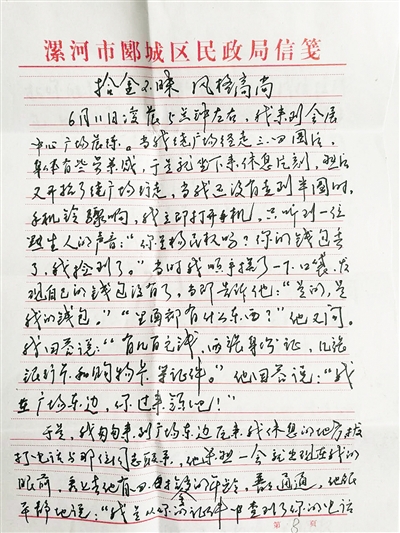 漯河市郾城区民政局信笺
拾金不昧 风格高尚
6月11日凌晨5点钟左右，我来到会展
中心广场晨练。当我绕广场经走三、四圈后，
身体有些劳累感，于是就坐下来休息片刻，
又开始了绕广场行走，当我还没有走到半圈时，
手机铃骤响，我立即打开手机，只听到一位
陌生人的声音：“你是杨民权吗？你的钱包丢
了，我捡到了。”当时我顺手摸了一下口袋，发
现自己的钱包没有了，当即告诉他：“是的，是
我的钱包。”“里面都有什么东西？”他又问。
我回答说：“有几百元钱，两张身份证，几张
银行卡和购物卡等证件。”他回答说：“我
在广场东边，你过来领吧！”
于是，我匆匆来到广场东边后来我休息的地方拨
打电话与那位同志联系，他果然一会就出现在我的
眼前，看上去他有四十多岁的年龄，普普通通，他很
平静地说：“我是从你的证件中查到了你的电话
第 8 页